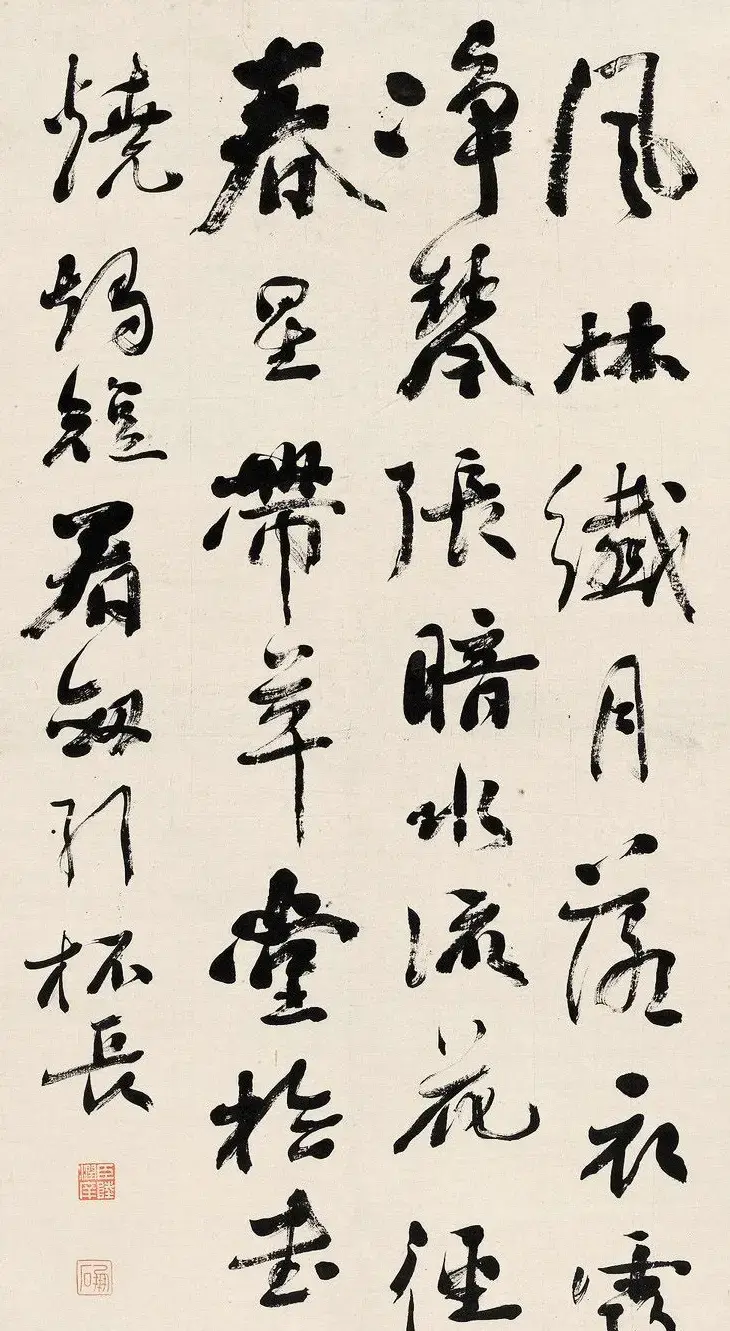 風林纖月落衣露
凈琴張暗水流花徑
春星帶草堂檢書
燒燭短看劍引杯長
臣陸潤庠
鳳石